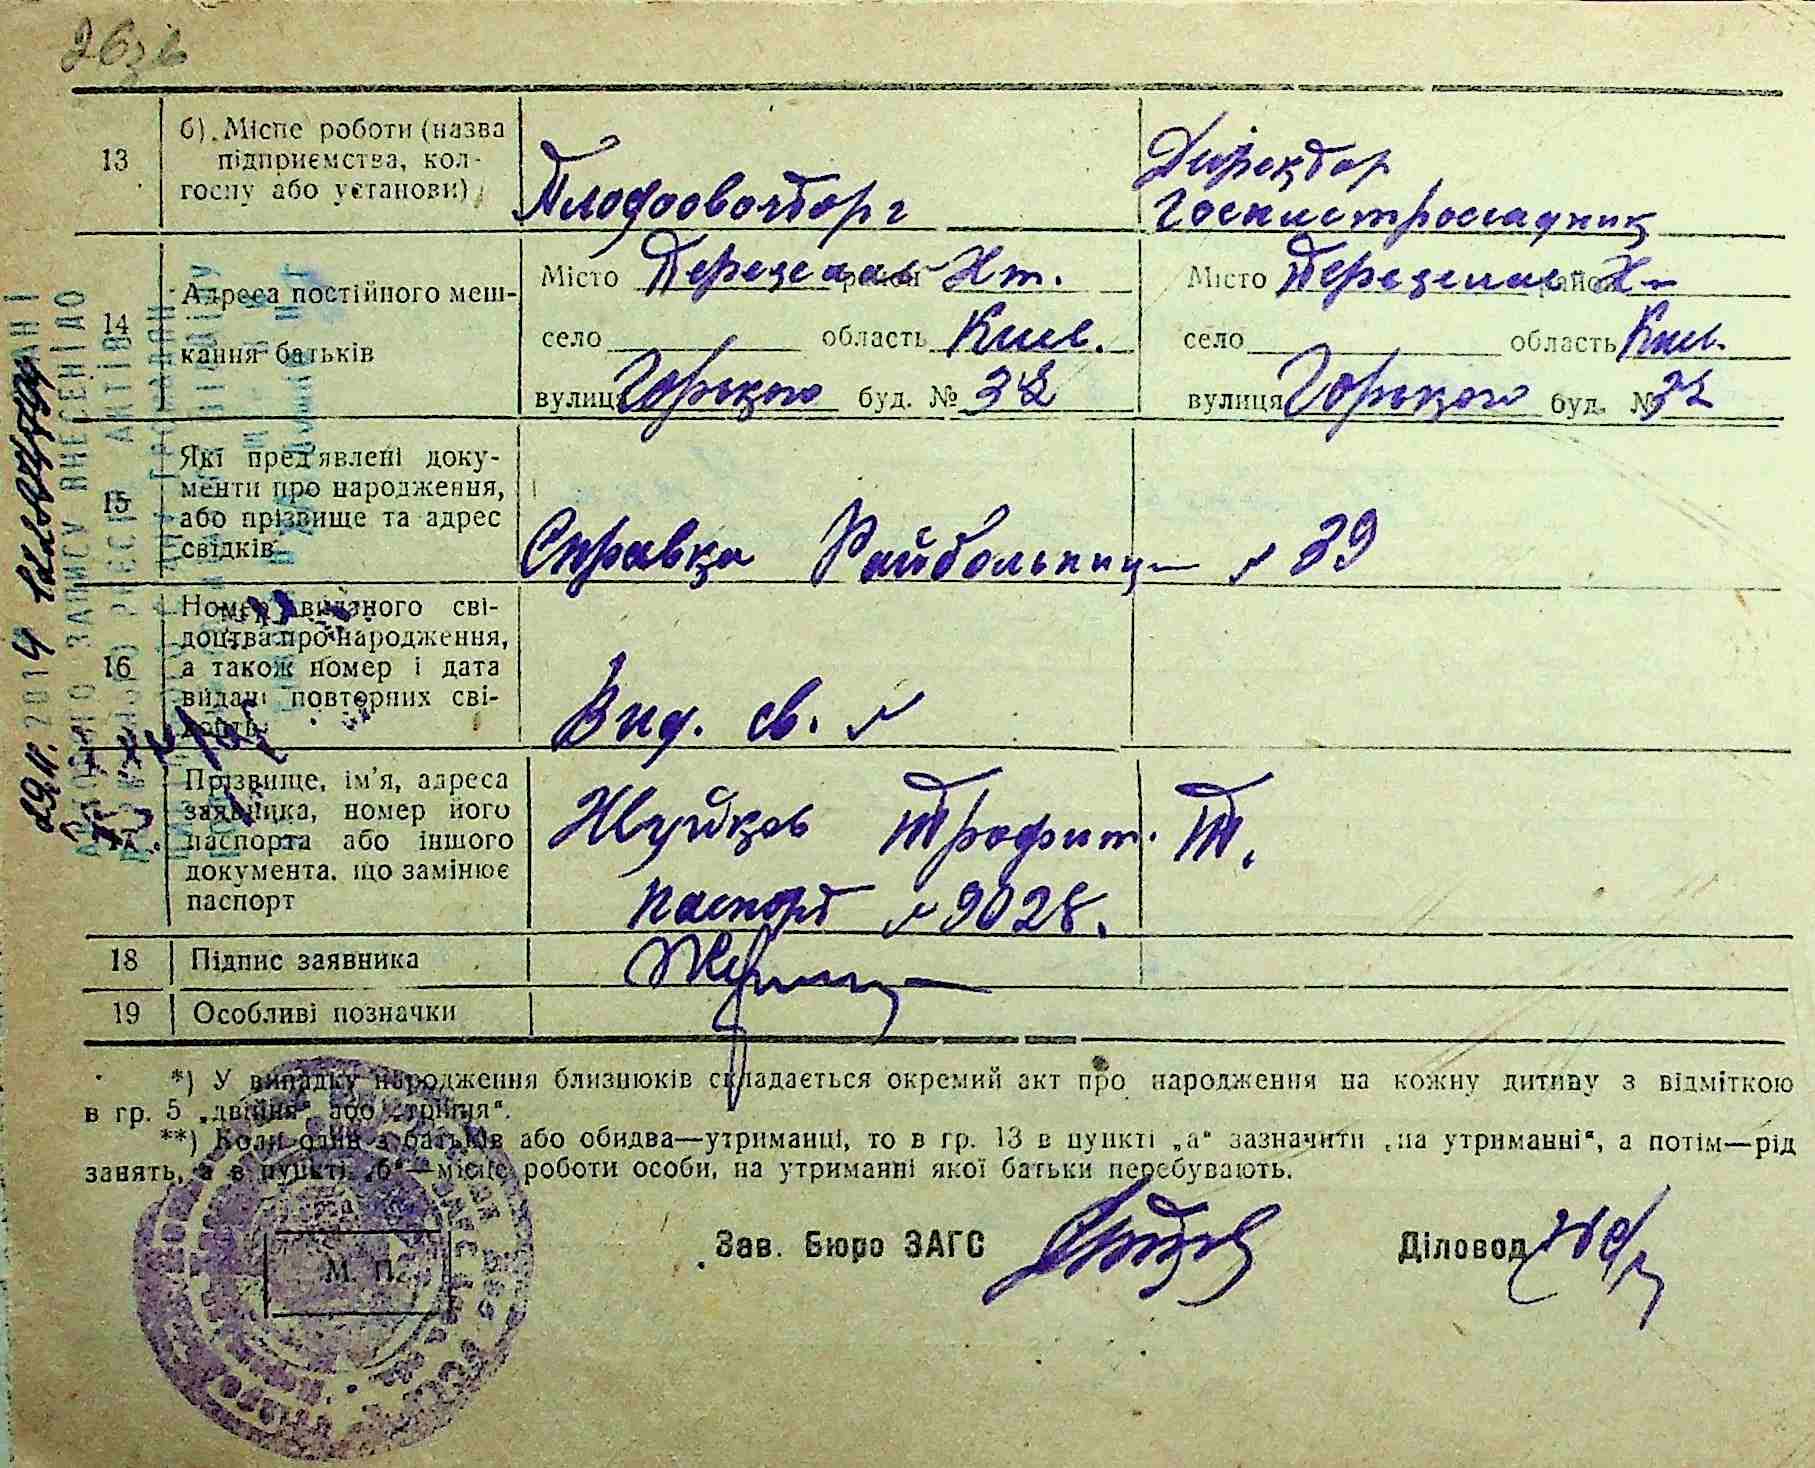 263в
13
б). Місце роботи (назва
підприємства, кол-
госпу або установи)
Плодоовочторг
Директор
14
Адреса постійного меш-
кання батьків
Місто Переяслав Хм. район
село область Київ.
вулиця Горького буд. № 32
Місто Переяслав Х район
село область Київ.
вулиця Горького буд. № 32
15
Які пред'явлені доку-
менти про народження,
або прізвище та адрес
свідків
Справка Райбольниц № 39
16
Номер виданого сві-
доцтва про народження,
а також номер і дата
видачі повторних сві-
доцтв
Вид. св. №
17
Прізвище, ім'я, адреса
заявника, номер його
паспорта або іншого
документа, що замінює
паспорт
Жуйков Трофим. Т.
паспорт № 9028.
18
Підпис заявника
19
Особливі позначки
*) У випадку народження близнюків складається окремий акт про народження на кожну дитину з відміткою
в гр. 5 „двійня" або „трійня".
**) Коли один з батьків або обидва—утриманці, то в гр. 13 в пункті „а" зазначити „на утриманні", а потім—рід
занять, а в пункті „б"—місце роботи особи, на утриманні якої батьки перебувають.
М. П.
Зав. Бюро ЗАГС
Діловод
29.11.2014
ЗАПИСУ ВНЕСЕНІ ДО